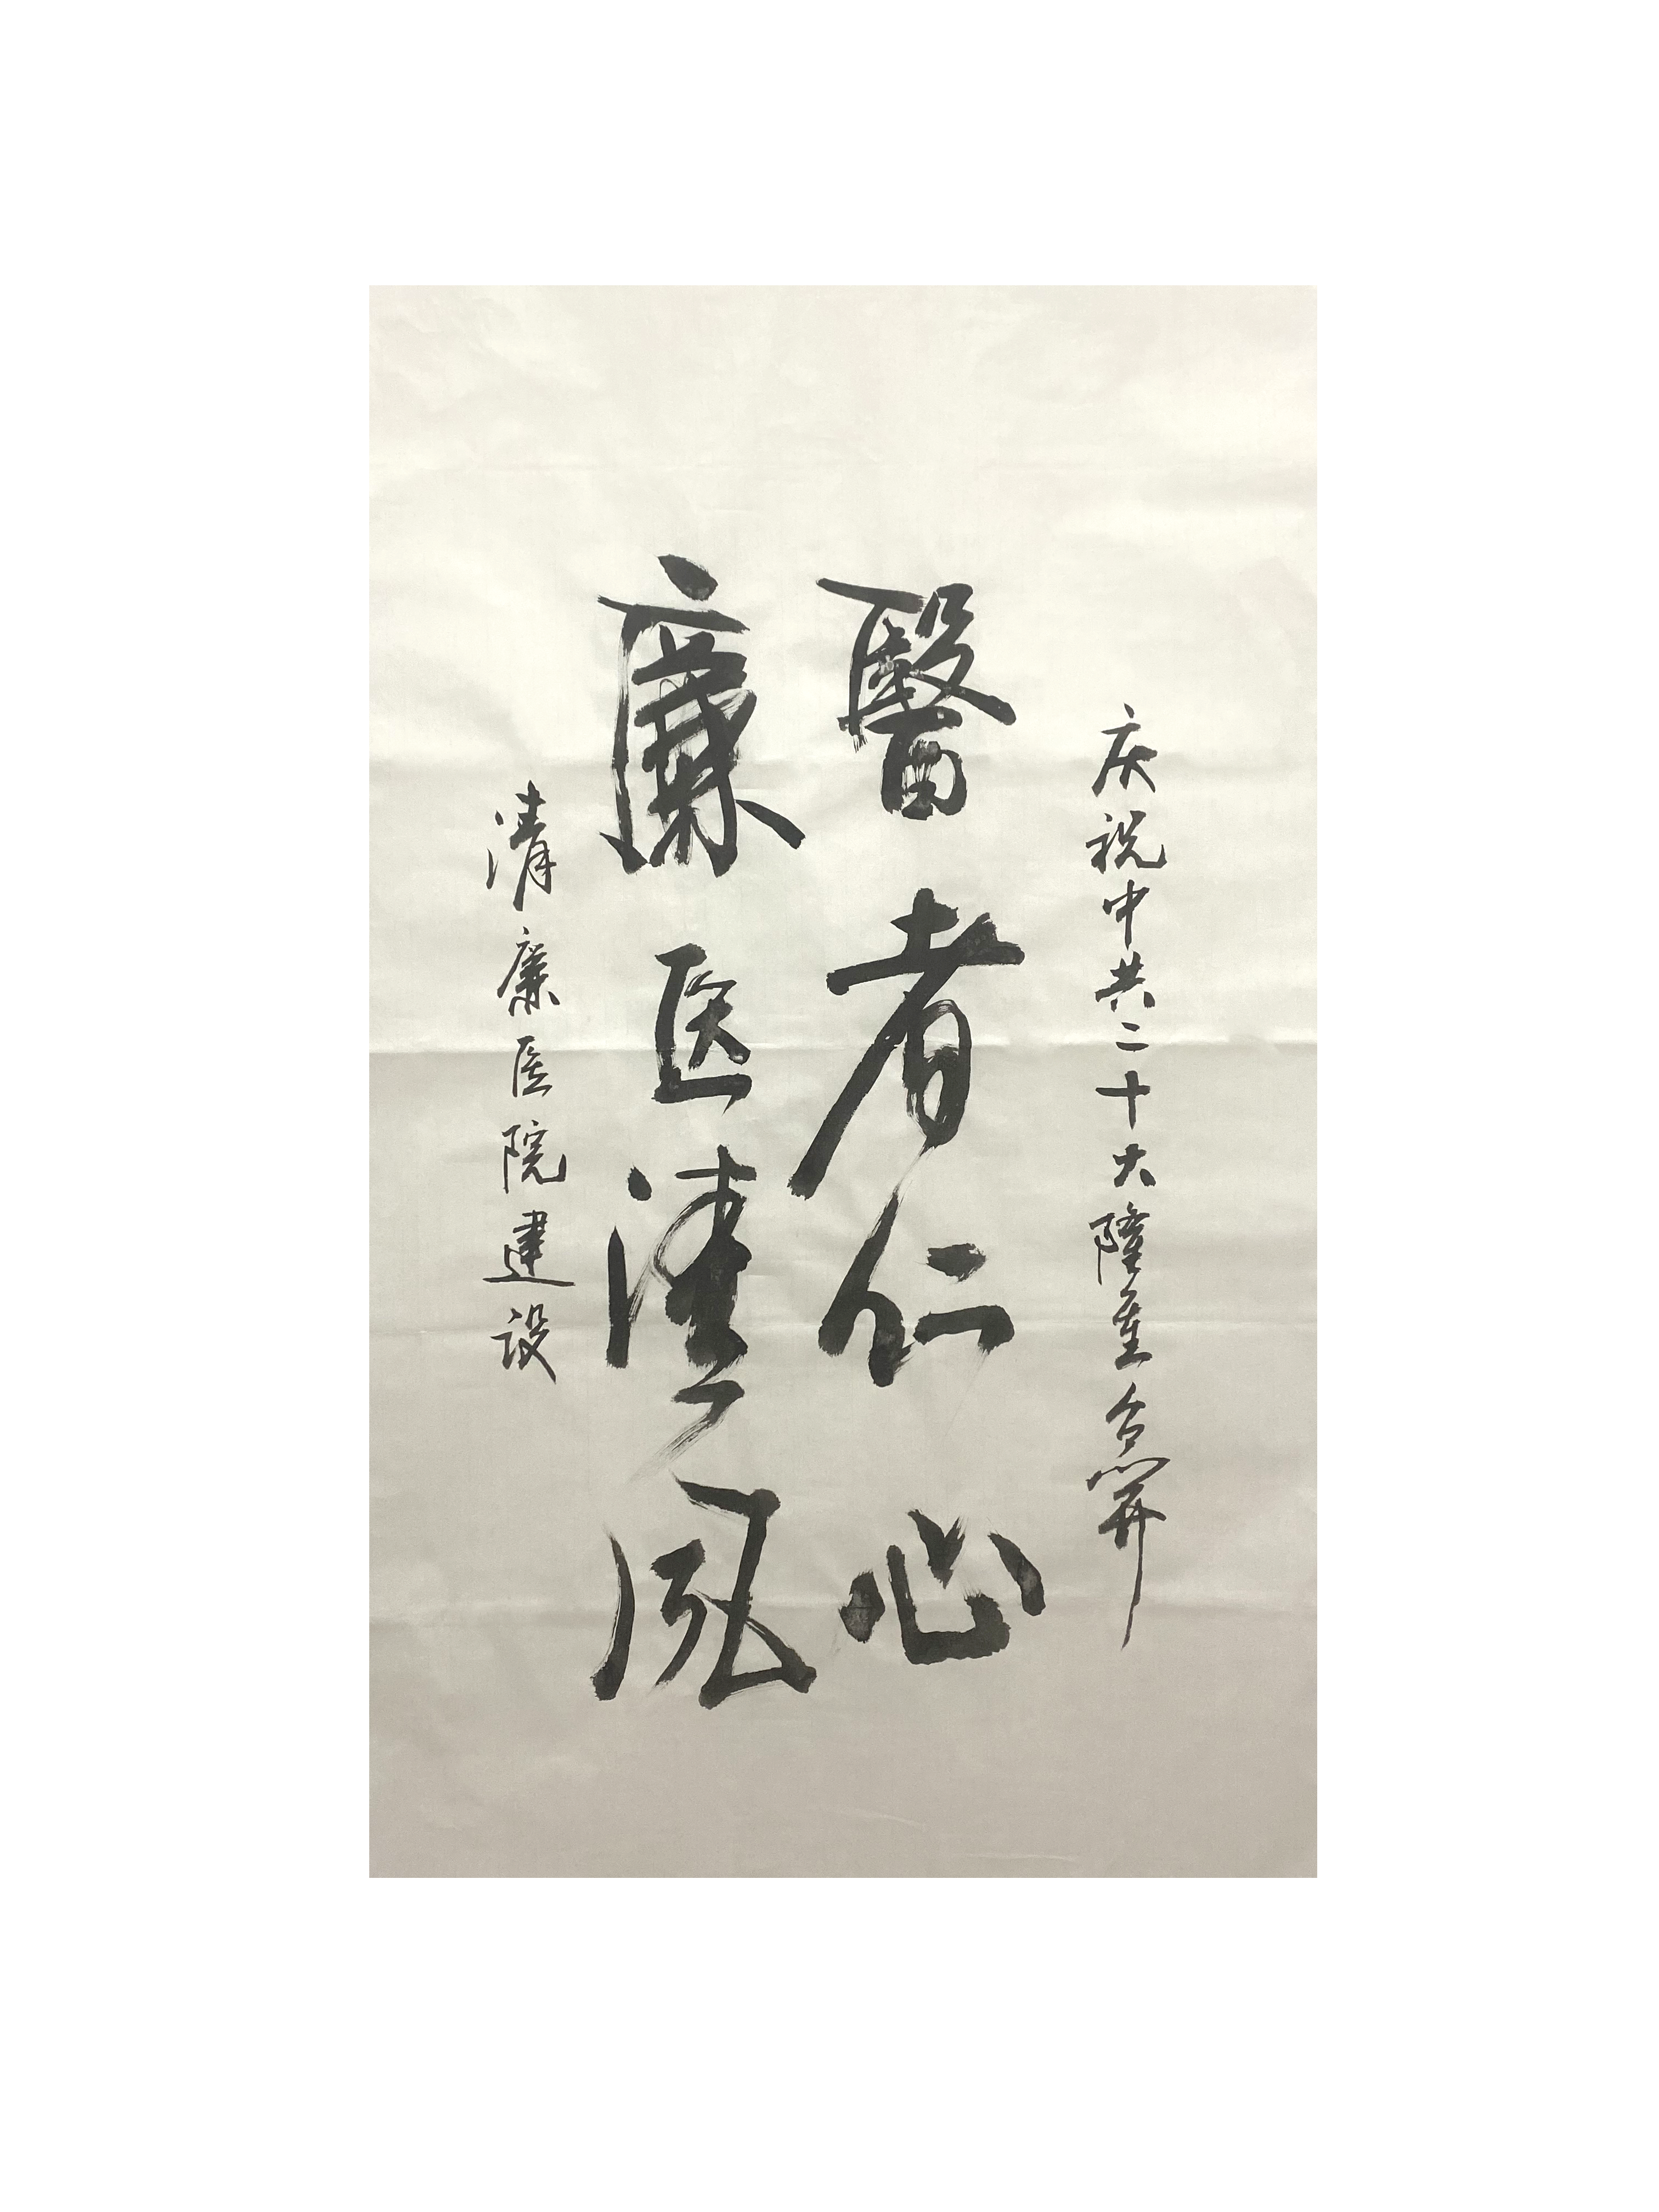 庆祝中共二十大隆重召开
醫者仁心
廉医清风
清廉医院建设